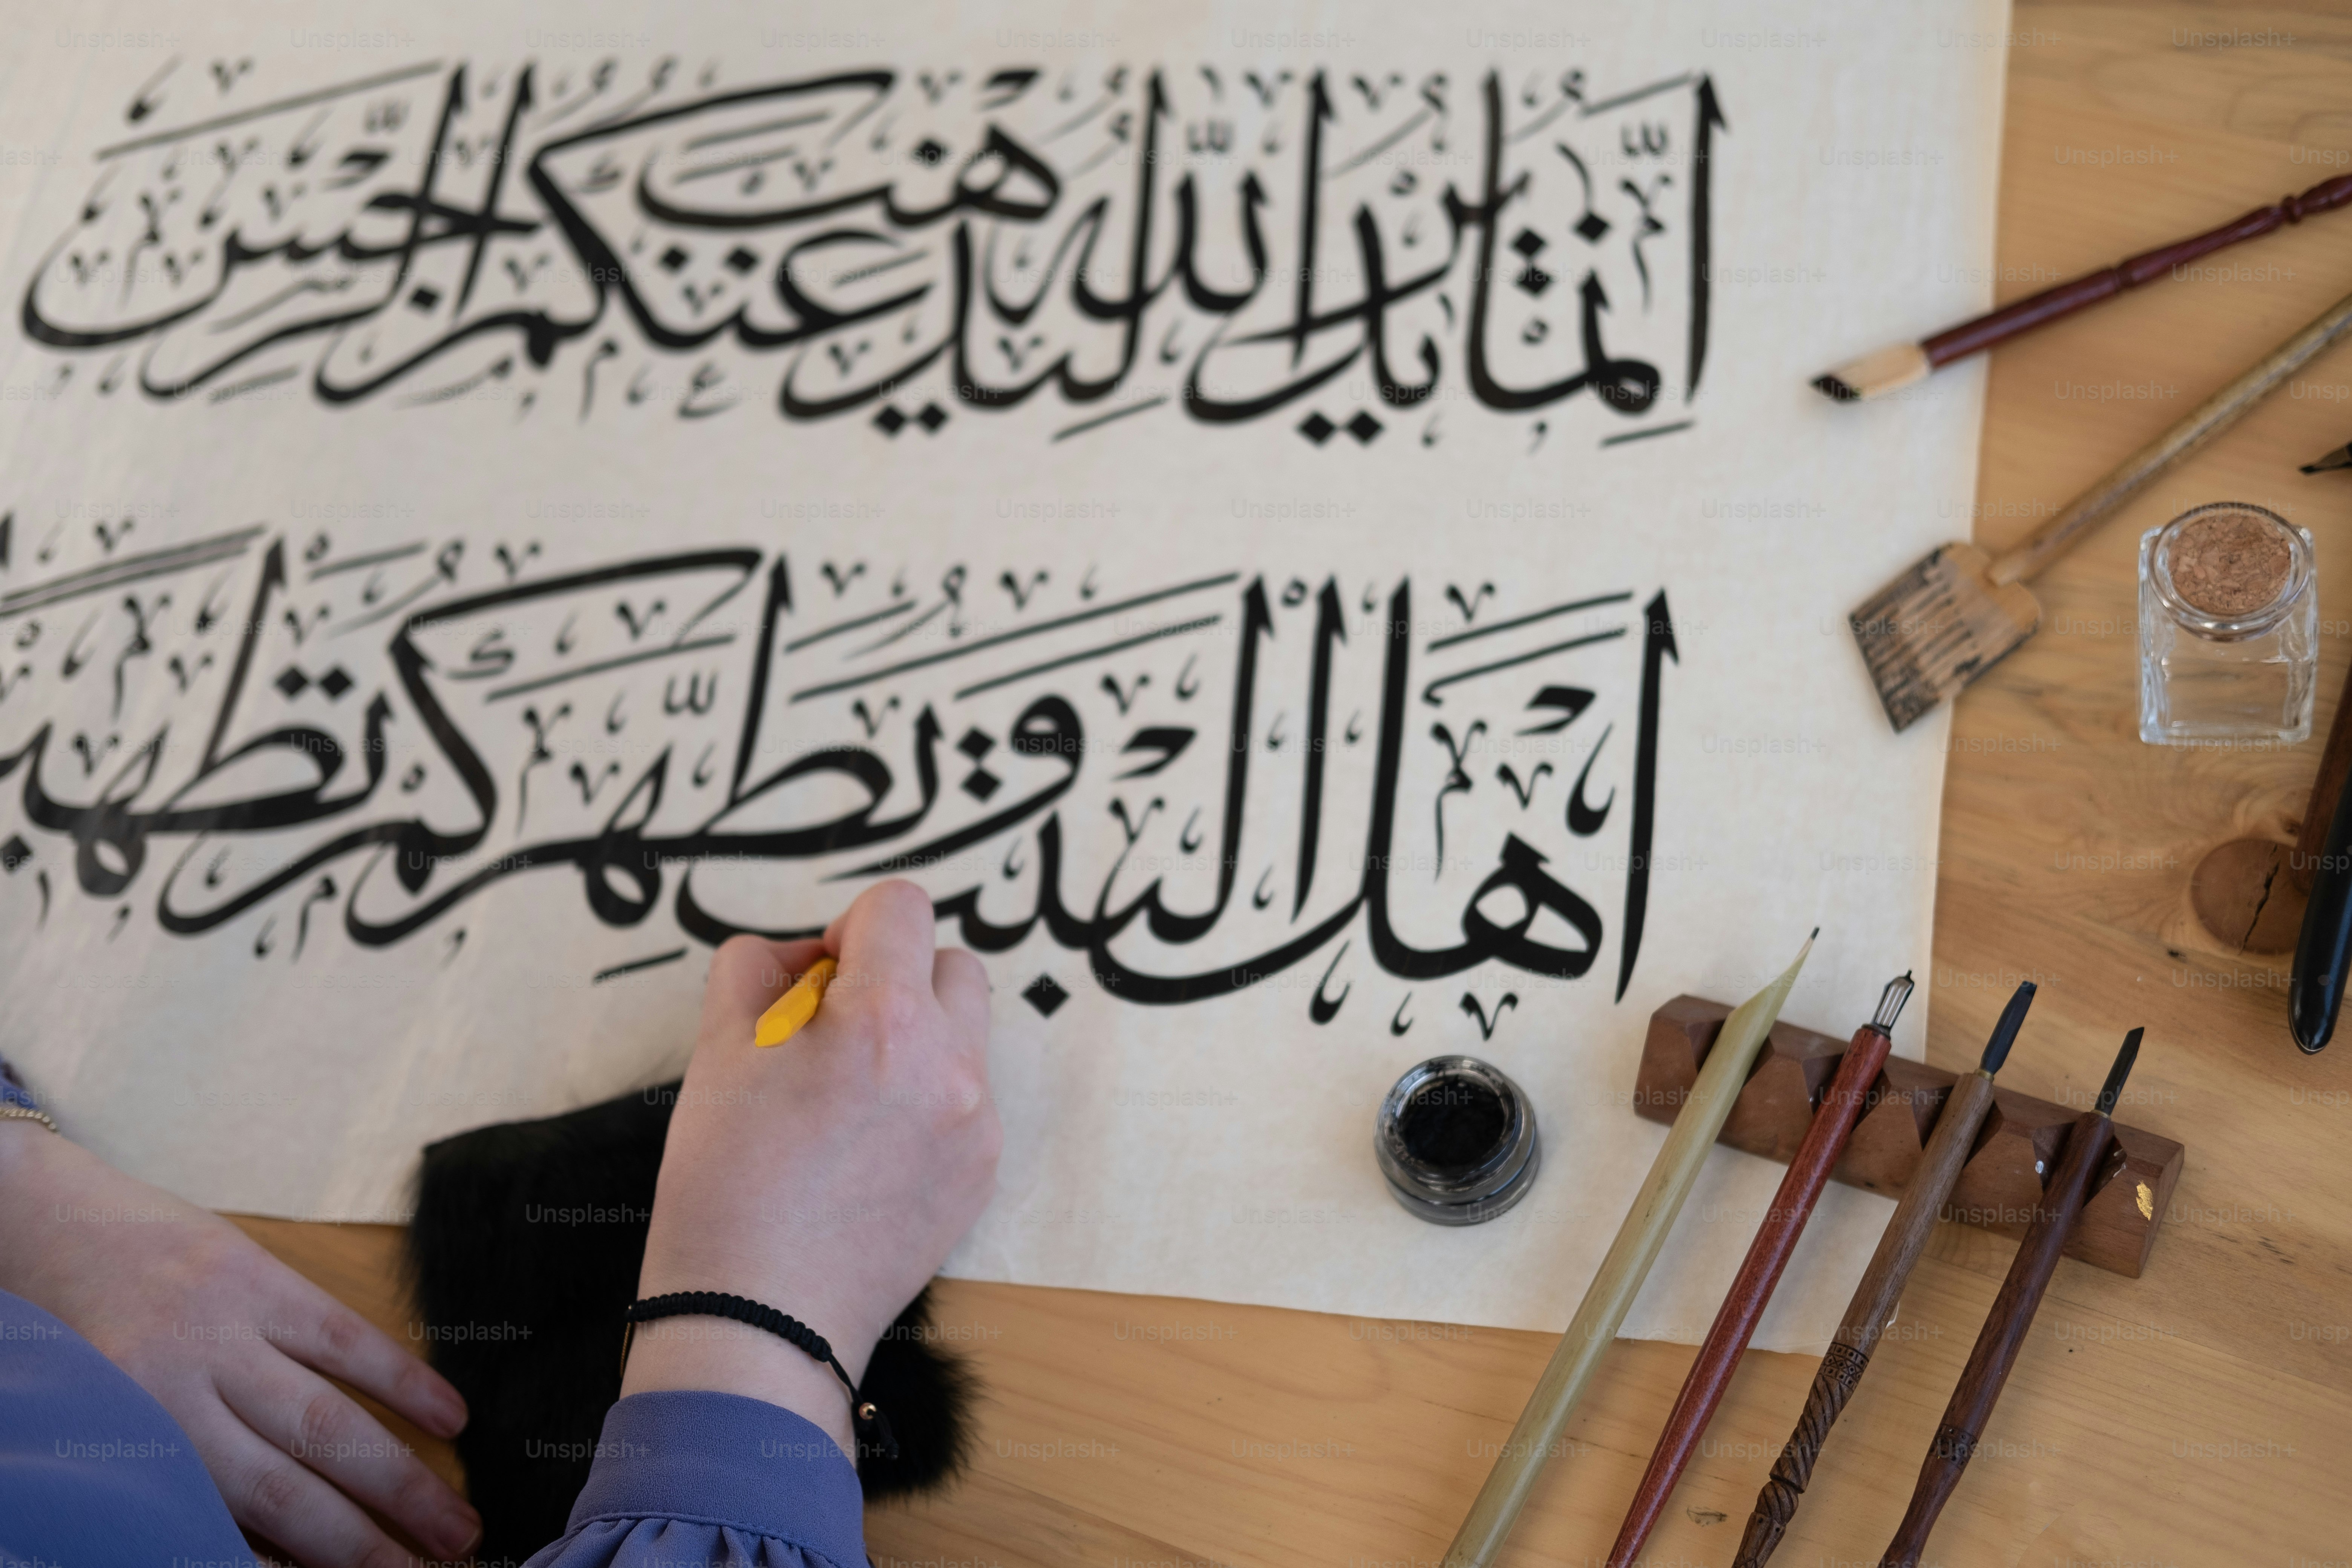 اِنَّمَا يُرِيدُ اللّٰهُ لِيُذْهِبَ عَنْكُمُ الرِّجْسَ
اَهْلَ الْبَيْتِ وَيُطَهِّرَكُمْ تَطْهِي
Unsplash+